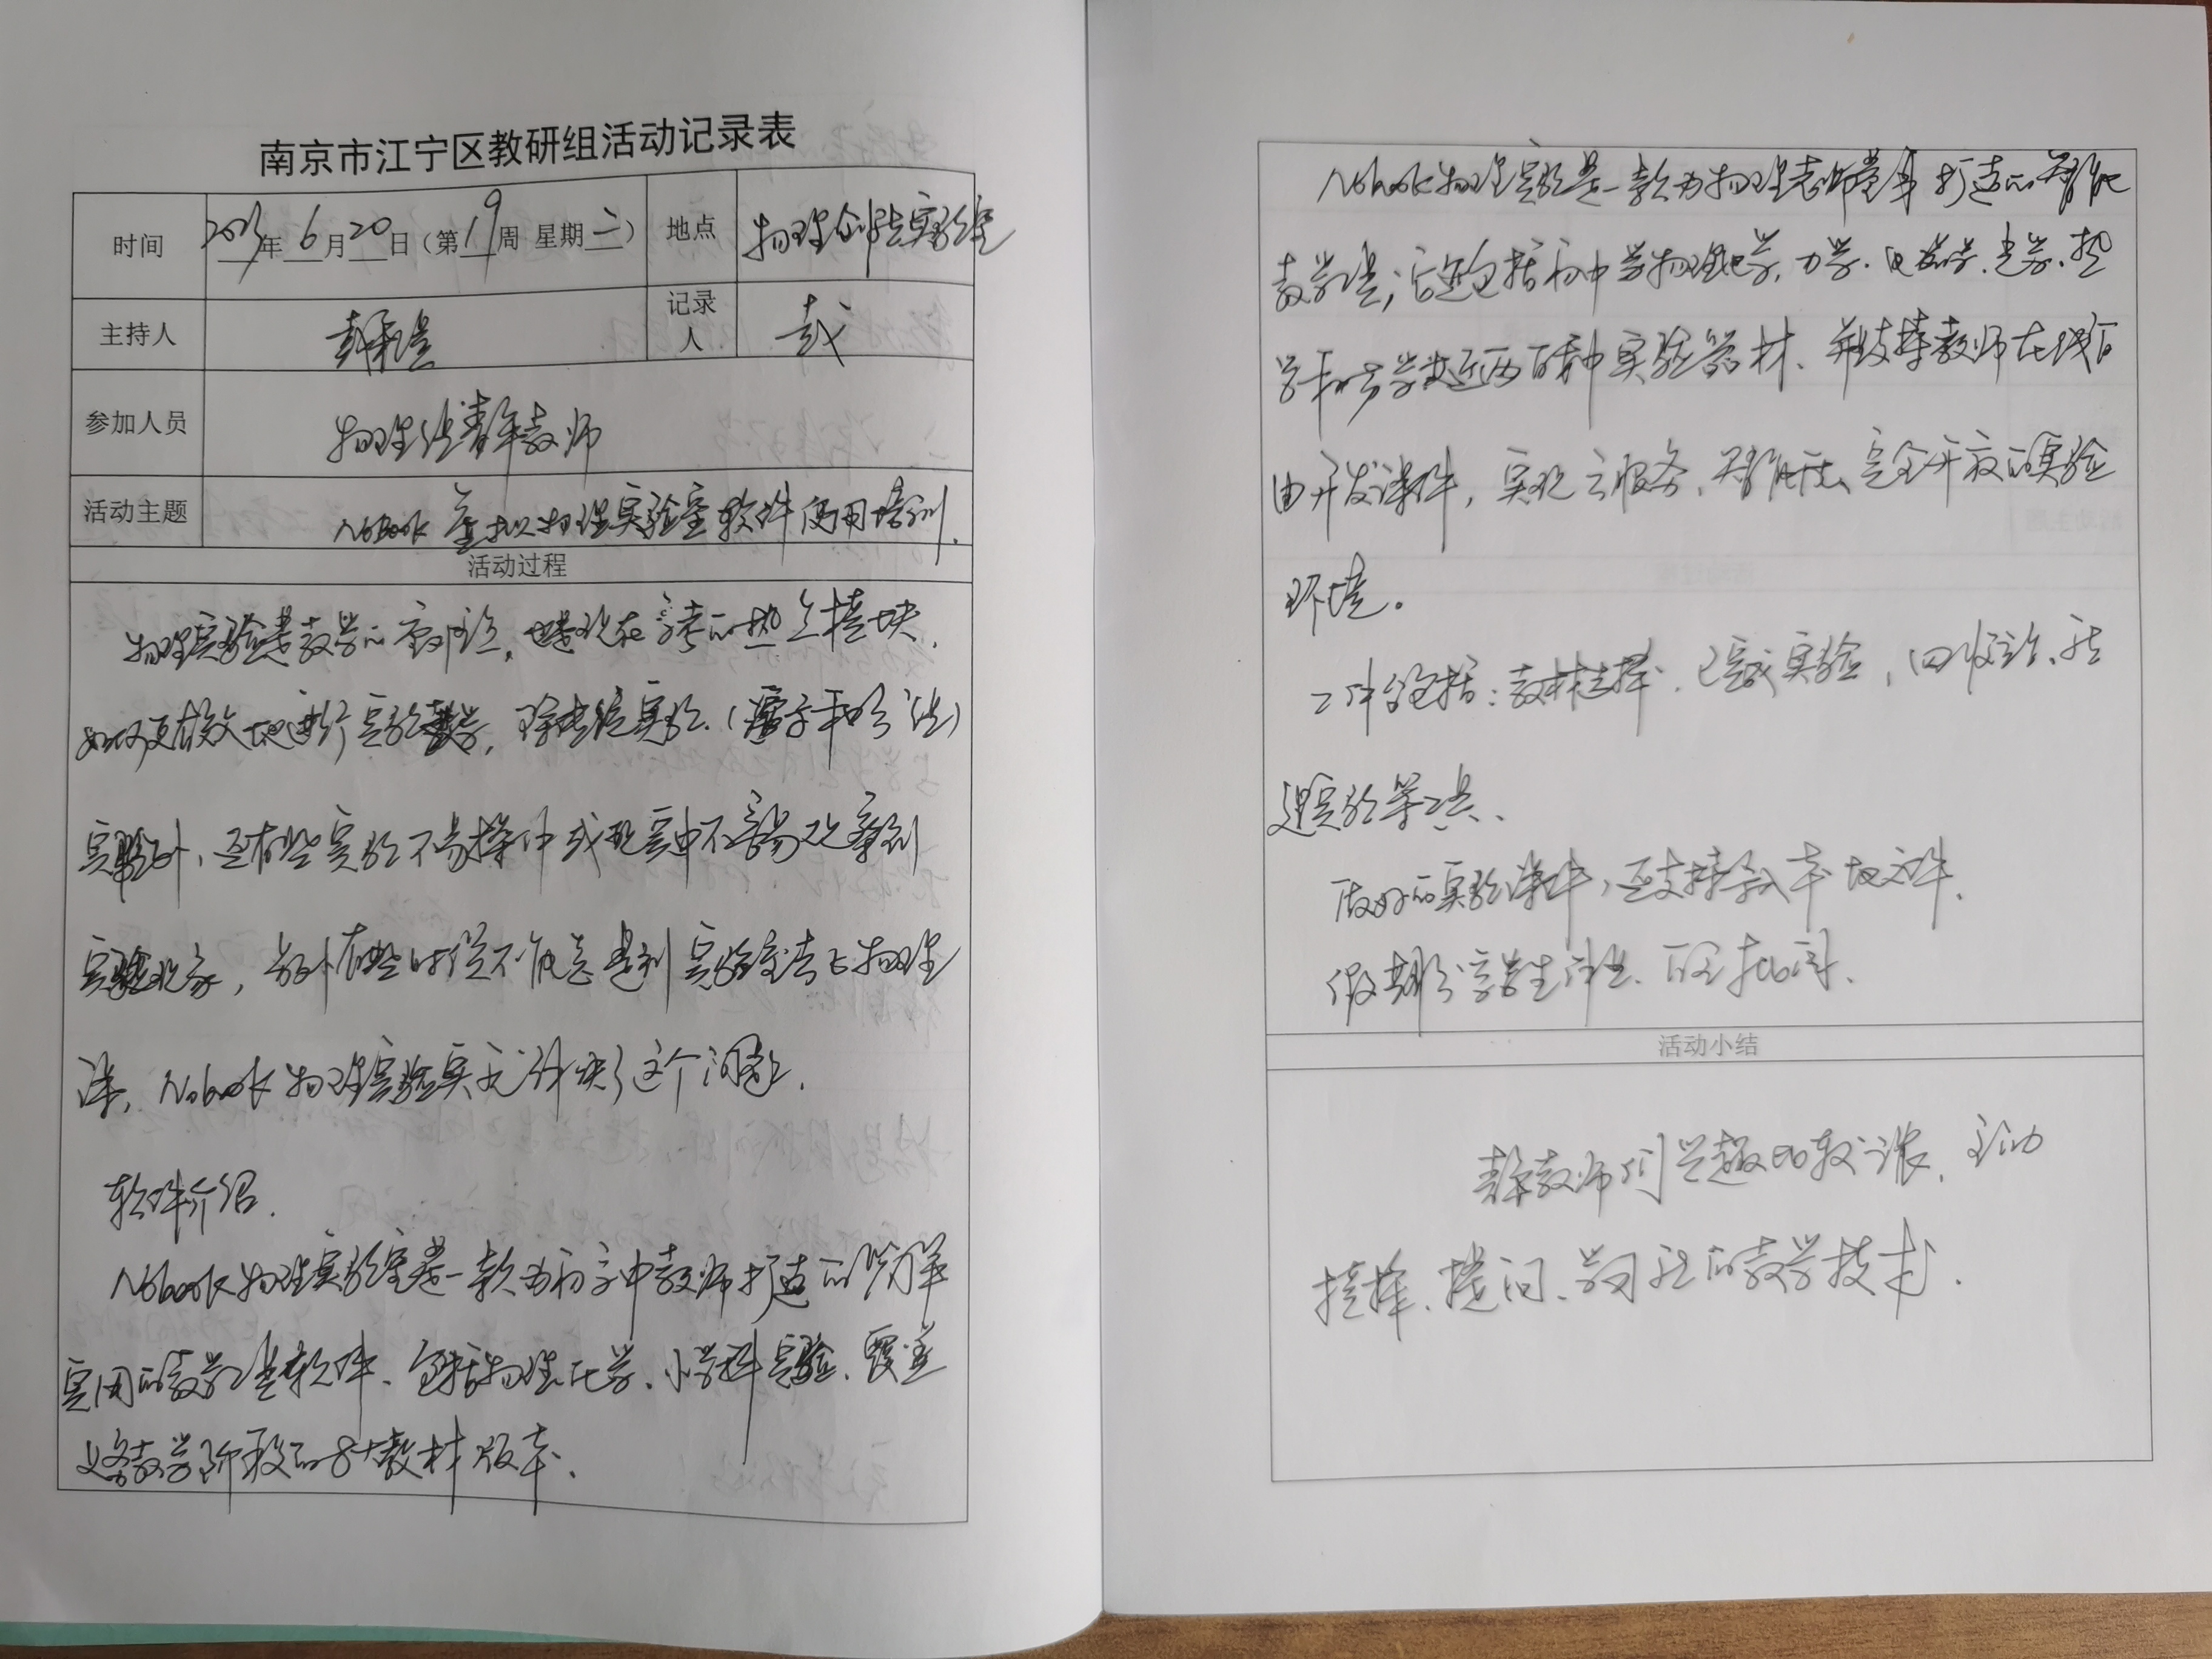 南京市江宁区教研组活动记录表
时间 2023年6月20日（第19周 星期二） 地点 物理创新实验室
主持人 记录人
参加人员 物理组青年教师
活动主题 Nobook 虚拟物理实验室软件使用培训.
活动过程
物理实验是教学的重要内容，也是现在考的热点模块.
如何更有效地进行实验教学，除传统实验.（演示和分组）
实验外，还有些实验不易操作或现实中不容易观察到
实验现象，另外有些时候不能总是到实验室去上物理
课，Nobook 物理实验室无疑解决了这个问题.
软件介绍.
Nobook物理实验室是一款为初高中教师打造的简单
实用的教学工具软件、包括物理、化学、小学科学实验、覆盖
义务教学阶段的8大教材版本.
Nobook物理实验是一款为物理老师量身打造的智能
教学工具；它还包括初中学物理电学、力学、电磁学、光学、热
学和声学共近两百种实验器材、并支持教师在线自
由开发课件，实现云服务、智能、完全开放的实验
环境。
工作台包括：教材选择、已完成实验，回收站、新
建实验等工具、
做好的实验课件，还支持导入本地文件.
假期分享学生作业、可批阅.
活动小结
青年教师们兴趣比较浓、主动
操作、提问、学习新的教学技术.